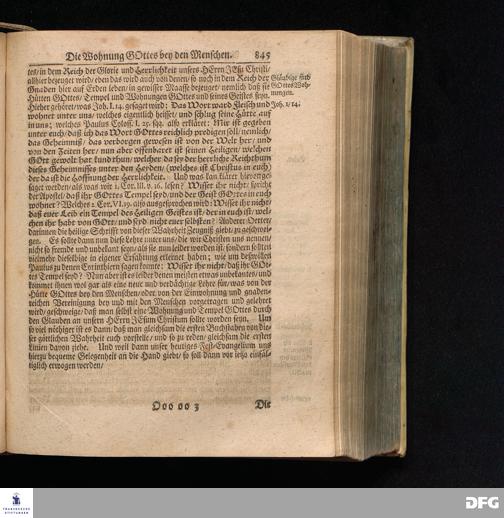 Die Wohnung GOttes bey den Menschen. 845
tes/ in dem Reich der Glorie und Herrlichkeit unsers HErrn JEsu Christi/
allhier bezeuget wird/ eben das wird auch von denen/ so noch in dem Reich der
Gnaden hier auf Erden leben/ in gewisser Maasse bezeuget/ nemlich daß sie
Hütten GOttes/ Tempel und Wohnungen GOttes und seines Geistes seyn.
Hieher gehöret/ was Joh. I. 14. gesagt wird: Das Wort ward Fleisch und
wohnet unter uns/ welches eigentlich heisset/ und schlug seine Hütte auf
in uns; welches Paulus Coloss. I. 25. sqq. also erkläret: Mir ist gegeben
unter euch/ daß ich das Wort GOttes reichlich predigen soll/ nemlich/
das Geheimniß/ das verborgen gewesen ist von der Welt her/ und
von den Zeiten her/ nun aber offenbaret ist seinen Heiligen/ welchen
GOtt gewolt hat kund thun/ welcher da sey der herrliche Reichthum
dieses Geheimnisses unter den Heyden/ (welches ist Christus in euch)
der da ist die Hoffnung der Herrlichkeit. Und was kan klärer hievon ge-
saget werden/ als was wir 1. Cor. III. v. 16. lesen? Wisset ihr nicht/ spricht
der Apostel/ daß ihr GOttes Tempel seyd/ und der Geist GOttes in euch
wohnet? Welches 1. Cor. VI. 19. also ausgesprochen wird: Wisset ihr nicht/
daß euer Leib ein Tempel des Heiligen Geistes ist/ der in euch ist/ wel-
chen ihr habt von GOtt/ und seyd nicht euer selbsten? Anderer Oerter/
darinnen die heilige Schrift von dieser Wahrheit Zeugniß giebt/ zu geschwei-
gen. Es sollte dann nun diese Lehre unter uns/ die wir Christen uns nennen/
nicht so fremd und unbekant seyn/ als sie nun leider worden ist/ sondern sollten
vielmehr dieselbige in eigener Erfahrung erlernet haben; wie um deswillen
Paulus zu denen Corinthiern sagen konnte: Wisset ihr nicht/ daß ihr GOt-
tes Tempel seyd? Nun aber ist es leider denen meisten etwas unbekantes/ und
kommet ihnen wol gar als eine neue und verdächtige Lehre für/ was von der
Hütte GOttes bey den Menschen/ oder von der Einwohnung und gnaden-
reichen Vereinigung bey und mit den Menschen vorgetragen und gelehret
wird/ geschweige/ daß man selbst eine Wohnung und Tempel GOttes durch
den Glauben an unsern HErrn JEsum Christum sollte worden seyn. Um
so viel nöthiger ist es dann/ daß man gleichsam die ersten Buchstaben von die-
ser göttlichen Wahrheit euch vorstelle/ und so zu reden/ gleichsam die ersten
Linien davon ziehe. Und weil dann unser heutiges Fest-Evangelium uns
hierzu bequeme Gelegenheit an die Hand giebt/ so soll dann vor ietzo einfäl-
tiglich erwogen werden/
Gläubige sind
GOttes Woh-
nungen.
Joh. 1/14:
Ooo oo 3 Die
FRANCKESCHE
STIFTUNGEN
DFG